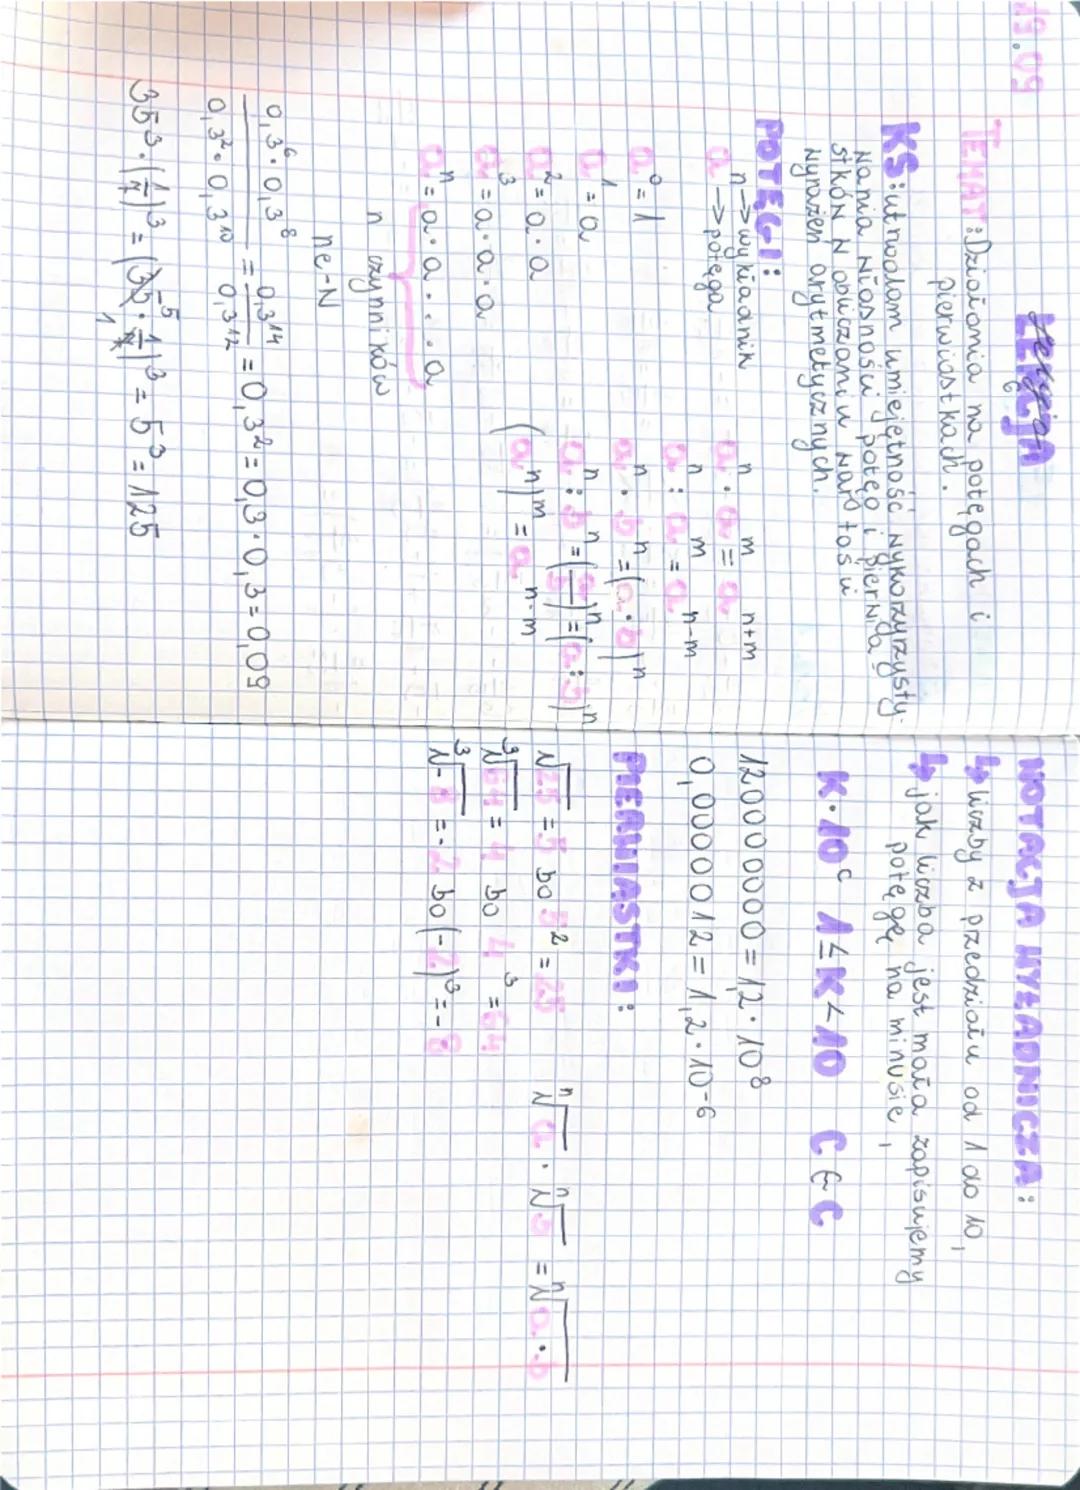 19.09
Lekcja 6
TEMAT: Działania na potęgach i
pierwiastkach.
KS: utrwalam umiejętność wykorzyrzysty-
wania własności potęg i pierwia-
stków w obliczaniu wartości
wyrażeń arytmetycznych.
POTĘGI:
aⁿ → wykładnik
→ potęga
a⁰ = 1
a¹ = a
a² = a · a
a³ = a · a · a
aⁿ = a · a · ... · a
n czynników
n ∈ N
aⁿ · aᵐ = aⁿ⁺ᵐ
aⁿ : aᵐ = aⁿ⁻ᵐ
aⁿ · bⁿ = (a · b)ⁿ
aⁿ : bⁿ = (a/b)ⁿ = (a : b)ⁿ
(aⁿ)ᵐ = aⁿ·ᵐ
0,3⁶ · 0,3⁸ / 0,3² · 0,3¹⁰ = 0,3¹⁴ / 0,3¹² = 0,3² = 0,3 · 0,3 = 0,09
35³ · (1/7)³ = (35 · 1/7)³ = 5³ = 125
NOTACJA WYŁADNICZA:
↳ liczby z przedziału od 1 do 10,
↳ jak liczba jest mała zapisujemy
potęgę na minusie,
K · 10ᶜ 1 ≤ K < 10 C ∈ C
120000000 = 1,2 · 10⁸
0,0000012 = 1,2 · 10⁻⁶
PIERWIASTKI:
√25 = 5 bo 5² = 25
³√64 = 4 bo 4³ = 64
³√-8 = -2 bo (-2)³ = -8
ⁿ√a · ⁿ√b = ⁿ√a · b